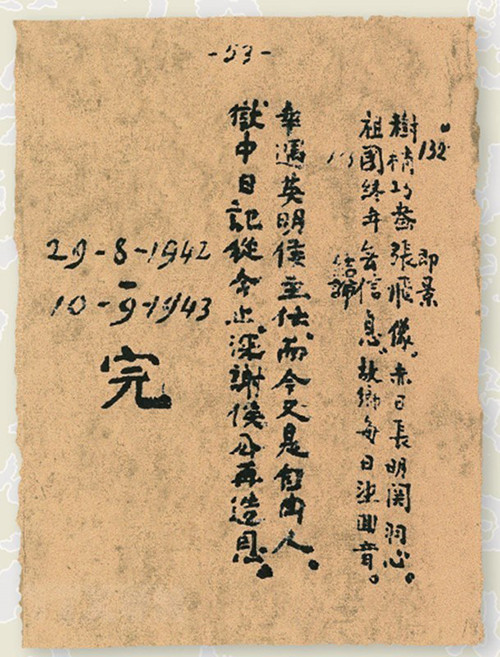 -53-
132
即景
樹梢巧畫張飛像。赤日長明關羽心。
祖國終年無信息。故鄉每日望回音。
結論
幸遇英明侯主任。而今又是自由人。
獄中日記從今止。深謝侯公再造恩。
29-8-1942
10-9-1943
完